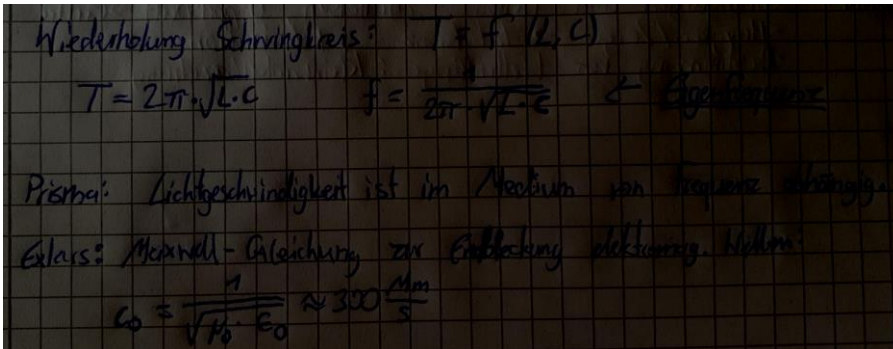 Wiederholung Schwingkreis: T = f (L, C)
T = 2π·√L·C f = 1/(2π·√L·C) ← Eigenfrequenz
Prisma: Lichtgeschwindigkeit ist im Medium von Frequenz abhängig.
Exkurs: Maxwell-Gleichung zur Entdeckung elektromag. Wellen:
c₀ = 1/√(μ₀·ε₀) ≈ 300 Mm/s